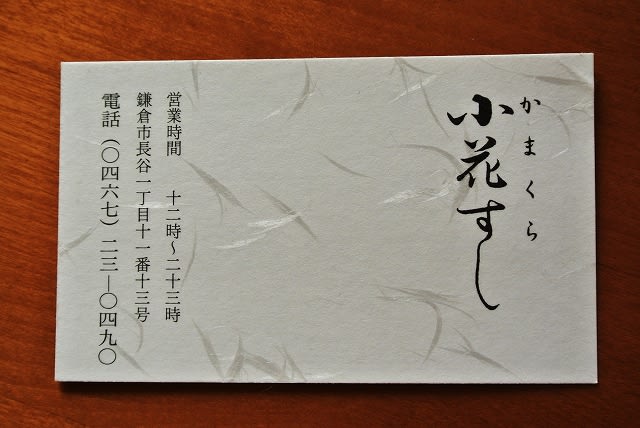 かまくら
小花すし
営業時間　十二時〜二十三時
鎌倉市長谷一丁目十一番十三号
電話（〇四六七）二三―〇四九〇